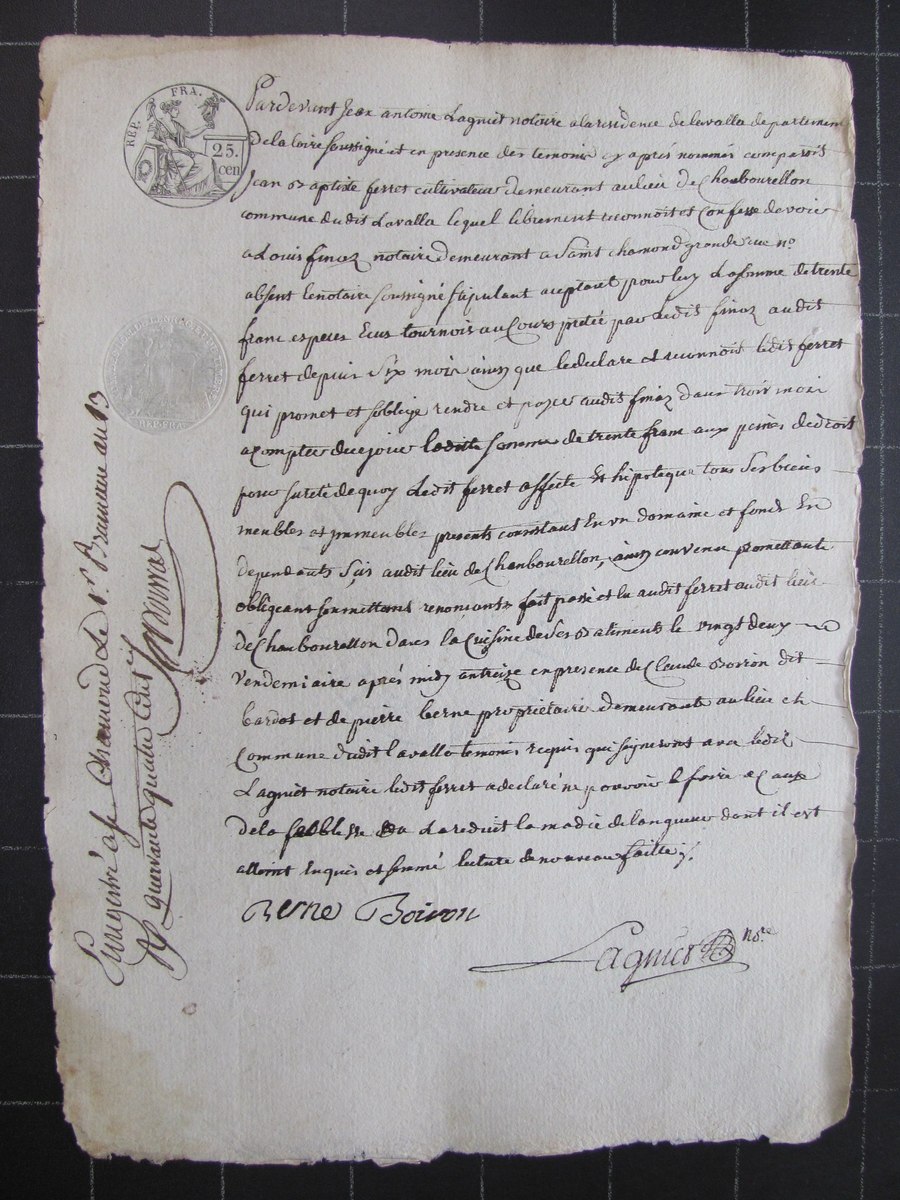 REP. FRA.
25.
cen
REP. FRA.
Pardevant Jean antoine Lagniet notaire a la residence de lavalla departement
De la loire soussigné et en presence des temoins cy après nommés comparoit
Jean Baptiste ferret cultivateur demeurant au lieu De Chanbourellon
commune dudit Lavalla lequel librement reconnoit et Confesse devoir
a Louis finaz notaire Demeurant a Saint chamond grande rue n.º
absent le notaire soussigné stipulant aceptant pour luy La somme de trente
franc especes Ecus tournois au Cours pretée par ledit finaz audit
ferret depuis Six mois ainsy que le declare et reconnoit ledit ferret
qui promet et soblige rendre et payer audit finaz dans trois mois
a compter de ce jour laditte somme de trente franc aux peines de droit
pour sureté de quoy Ledit ferret affecte et hipoteque tous ses biens
meubles et immeubles presents consistant En un domaine et fonds En
dependants Sis audit lieu de Chanbourellon, ainsy convenu promettants
obligeant soumettans renonçants fait passé et lu audit ferret audit lieu
de Chanbourellon dans la Cuisine de ses Batiments le vingt deux
Vendemiaire après midy an treize en presence de Claude Boiron dit
bardot et de pierre berne proprietaires demeurants au lieu et
Commune dudit lavalla temoins requis qui signeront avec ledit
Lagniet notaire ledit ferret a declaré ne pouvoir le faire a Cause
de la foiblesse La reduit la madie de langueur dont il est
atteint Enquis et sommé lecture de nouveau faitte
Berne Boiron
Lagniet no.re
Enregistré a St Chamond Le 1.er Brumaire an 13
quarante quatre